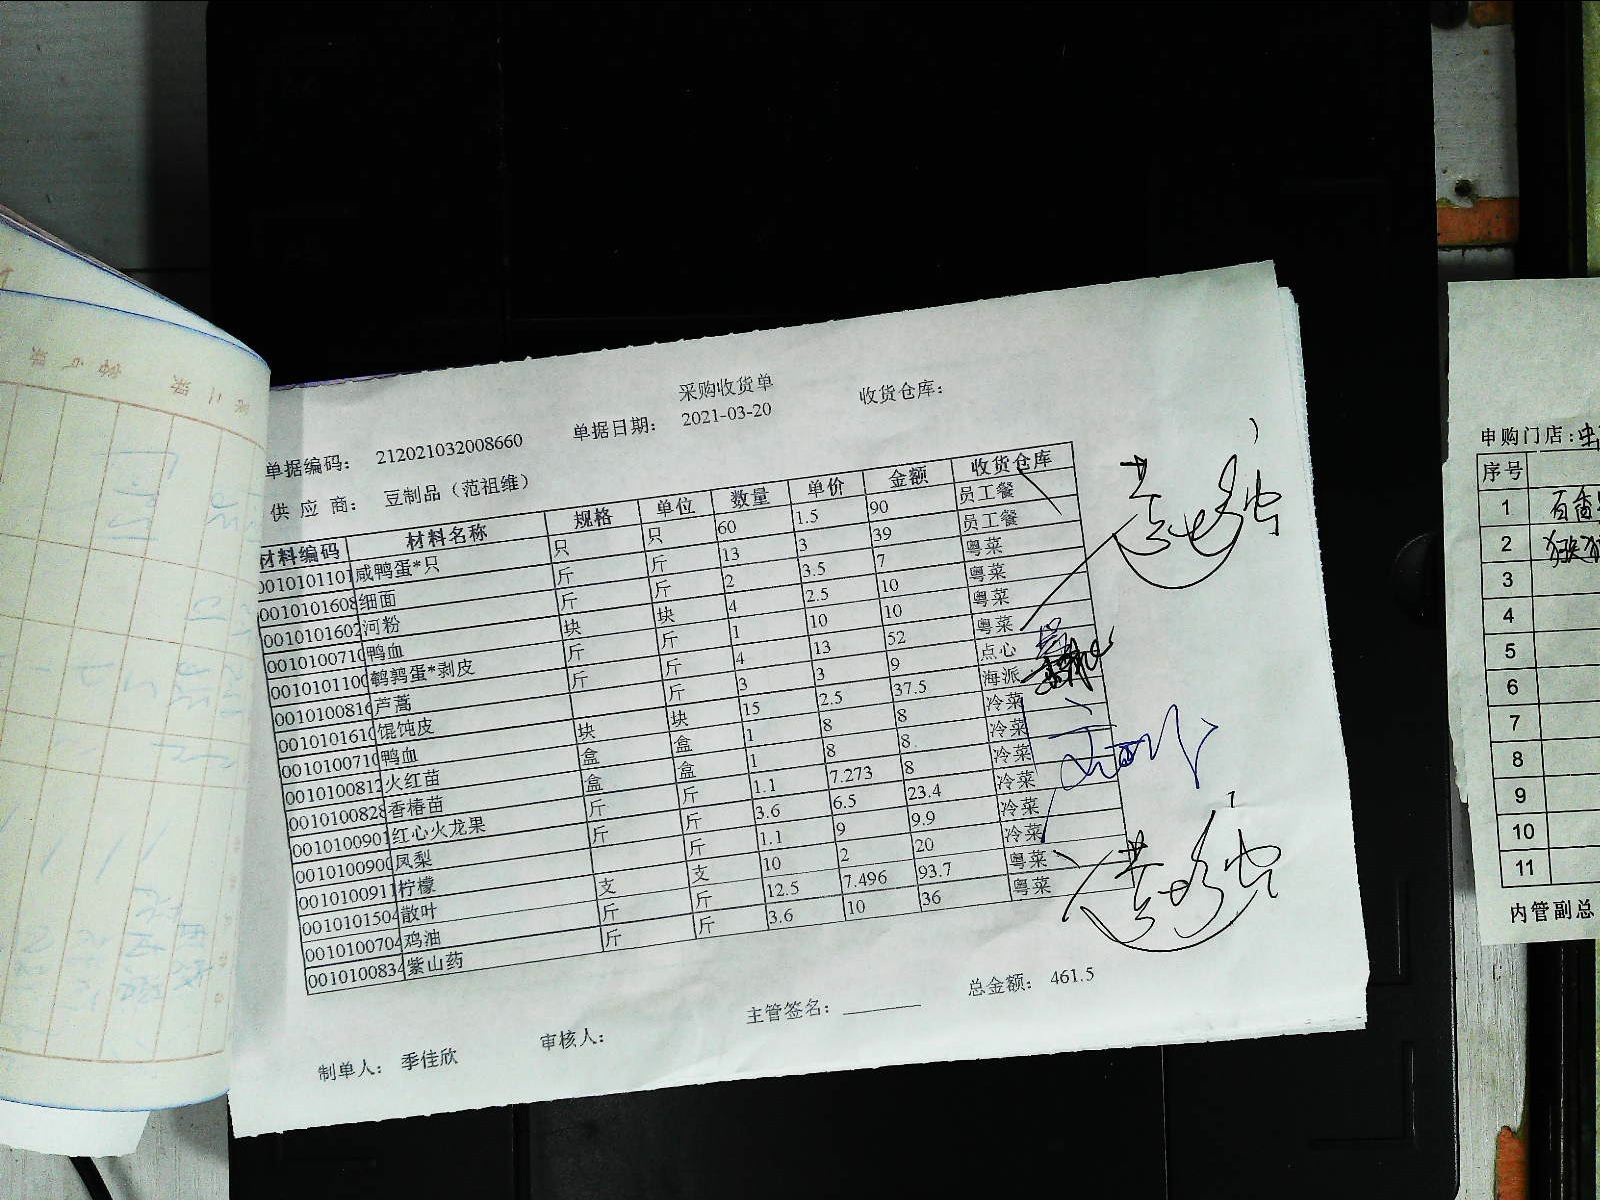 采购收货单
单据编码： 212021032008660 单据日期： 2021-03-20 收货仓库：
供 应 商： 豆制品（范祖维）
材料编码 材料名称 规格 单位 数量 单价 金额 收货仓库
0010101101 咸鸭蛋*只 只 只 60 1.5 90 员工餐
0010101608 细面 斤 斤 13 3 39 员工餐
0010101602 河粉 斤 斤 2 3.5 7 粤菜
0010100710 鸭血 块 块 4 2.5 10 粤菜
0010101100 鹌鹑蛋*剥皮 斤 斤 1 10 10 粤菜
0010100816 芦蒿 斤 斤 4 13 52 粤菜
0010101610 馄饨皮 斤 3 3 9 点心
0010100710 鸭血 块 块 15 2.5 37.5 海派
0010100812 火红苗 盒 盒 1 8 8 冷菜
0010100828 香椿苗 盒 盒 1 8 8 冷菜
0010100901 红心火龙果 斤 斤 1.1 7.273 8 冷菜
0010100900 凤梨 斤 斤 3.6 6.5 23.4 冷菜
0010100911 柠檬 斤 1.1 9 9.9 冷菜
0010101504 散叶 支 支 10 2 20 冷菜
0010100704 鸡油 斤 斤 12.5 7.496 93.7 粤菜
0010100834 紫山药 斤 斤 3.6 10 36 粤菜
总金额： 461.5
制单人： 季佳欣 审核人： 主管签名：
申购门店：
序号
1
2
3
4
5
6
7
8
9
10
11
内管副总